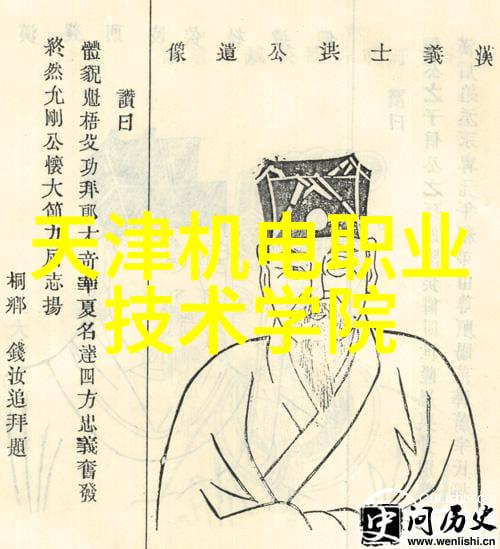 漢義士洪公遺像
讚曰
體貌魁梧父功拜郎 華夏名達四方忠義奮發
終然允剛公懷大節九原志揚
桐鄉 錢汝追拜題
天津机电职业
技术学院
问历史
www.wenlishi.cn